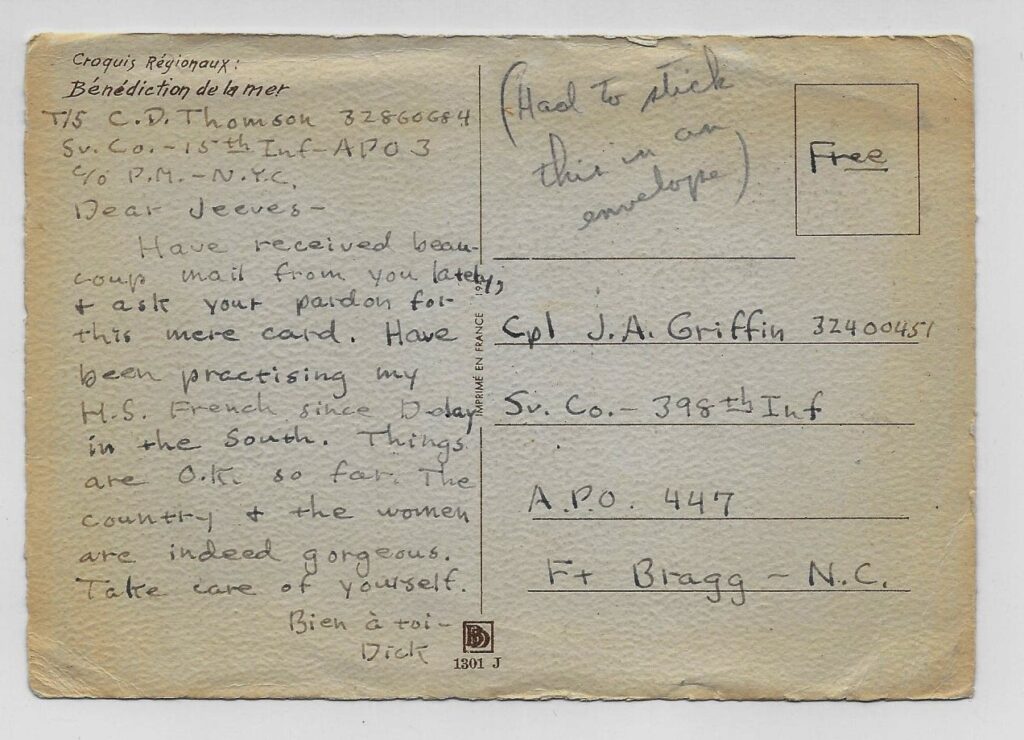 Croquis Régionaux :
Bénédiction de la mer
T/5 C.D. Thomson 32860684
Sv. Co. - 15th Inf - APO 3
c/o P.M. - N.Y.C.
Dear Jeeves -
Have received beau-
coup mail from you lately,
+ ask your pardon for
this mere card. Have
been practising my
H.S. French since D-day
in the South. Things
are O.K. so far. The
country + the women
are indeed gorgeous.
Take care of yourself.
Bien à toi -
Dick
IMPRIMÉ EN FRANCE
BD
1301 J
(Had to stick
this in an
envelope)
Free
Cpl J.A. Griffin 32400451
Sv. Co. - 398th Inf
A.P.O. 447
Ft Bragg - N.C.